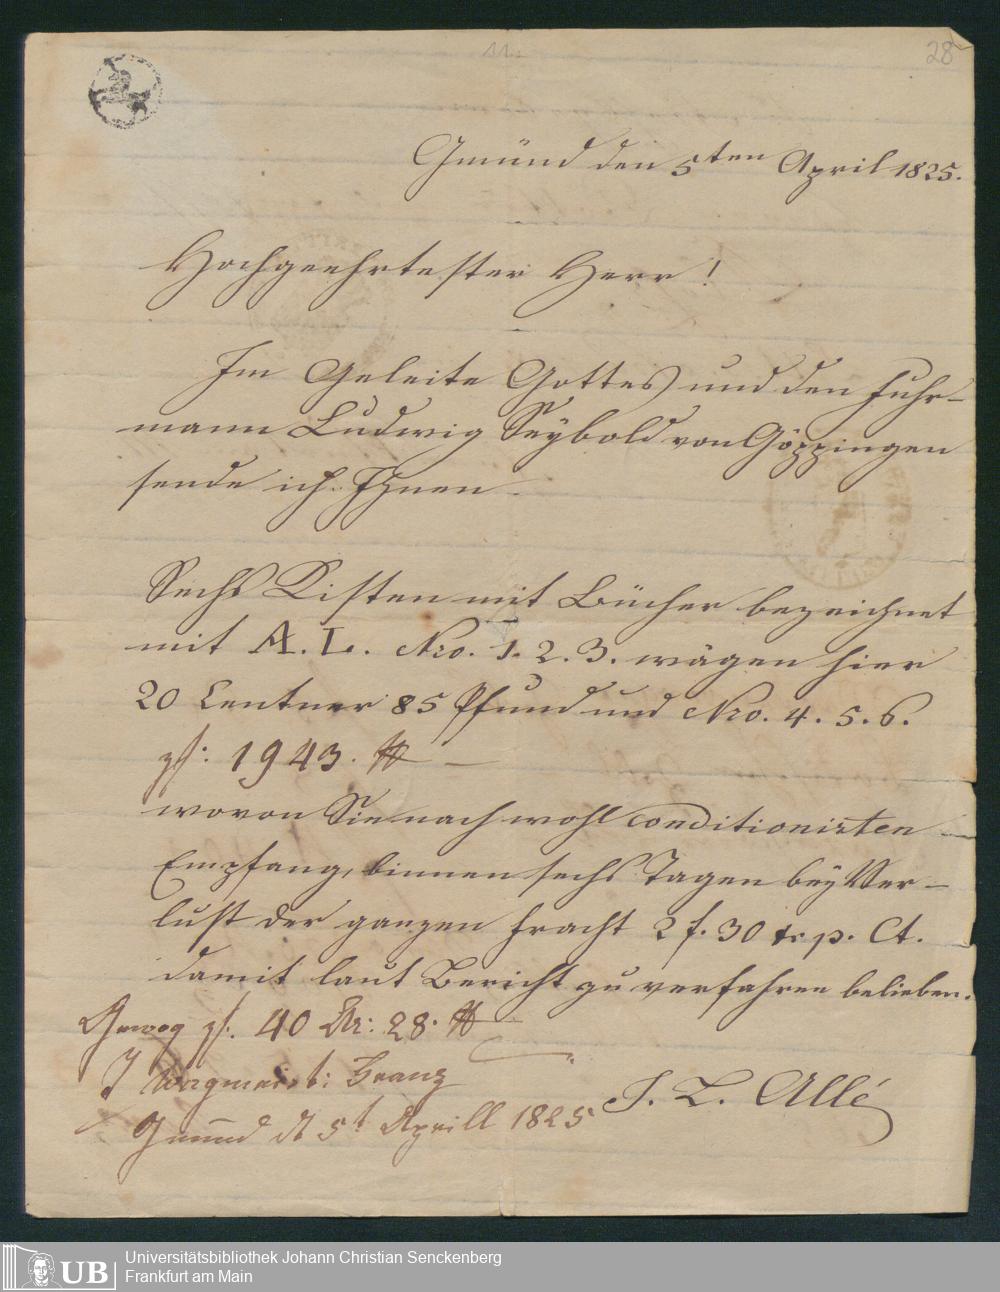 11.
28
Gmünd den 5ten April 1825.
Hochgeehrtester Herr!
Im Geleite Gottes und den Fuhr-
mann Ludwig Seybold von Göppingen
sende ich Ihnen
Sechs Kisten mit Bücher bezeichnet
mit A. L. Nro. 1. 2. 3. wägen hier
20 Centner 85 Pfund und Nro. 4. 5. 6.
zs: 1943. ℔
wovon Sie nach wohl conditionirten
Empfang, binnen sechs Tagen bey Ver-
lust der ganzen Fracht 2 f. 30 kr p. Ct.
damit laut Bericht zu verfahren belieben.
Gewog zs. 40 Ctr: 28. ℔
Wagmeist: Franz
Gmünd d 5t Aprill 1825
J. L. Allé
UB
Universitätsbibliothek Johann Christian Senckenberg
Frankfurt am Main